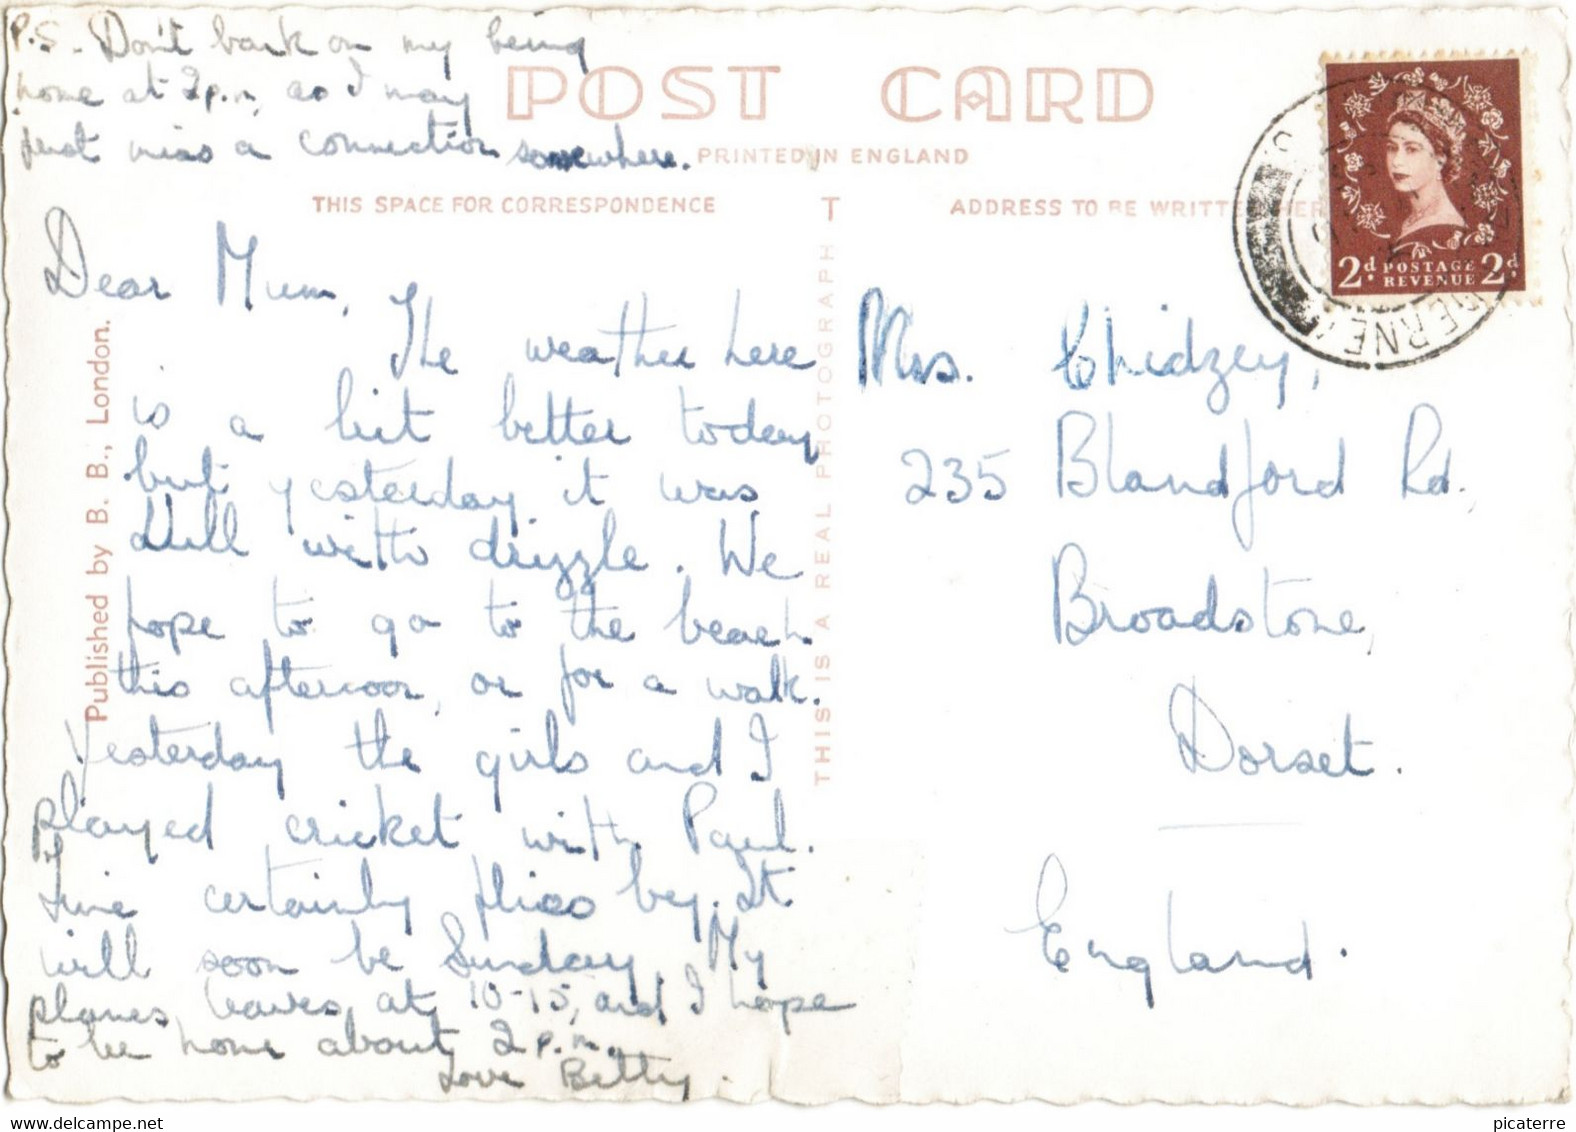 P.S. Don't bank on my being
home at 2 p.m, as I may
just miss a connection somewhere.
POST CARD
PRINTED IN ENGLAND
THIS SPACE FOR CORRESPONDENCE
ADDRESS TO BE WRITT HER
2d POSTAGE REVENUE 2d
ERNE
Dear Mum,
The weather here
is a bit better today
but yesterday it was
dull with drizzle. We
hope to go to the beach
this afternoon, or for a walk.
Yesterday the girls and I
played cricket with Paul.
Time certainly flies by. It
will soon be Sunday. My
planes leaves at 10-15, and I hope
to be home about 2 p.m.
Love Betty.
Published by B. B., London.
THIS IS A REAL PHOTOGRAPH T
Mrs. Chidzey,
235 Blandford Rd.
Broadstone,
Dorset.
England.
delcampe.net
picaterre